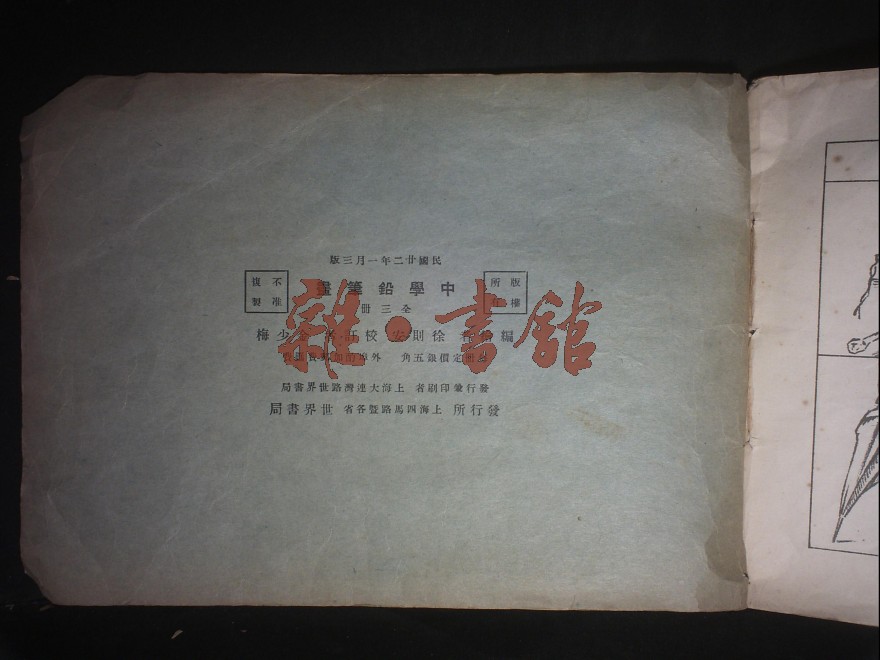 民國廿二年一月三版
版權所有
中學鉛筆畫
不准復製
全三冊
編 徐則安 校訂者 少梅
冊定價銀五角 外埠酌加郵費
發行兼印刷者 上海大連灣路世界書局
發行所 上海四馬路暨各省 世界書局
雜·書館